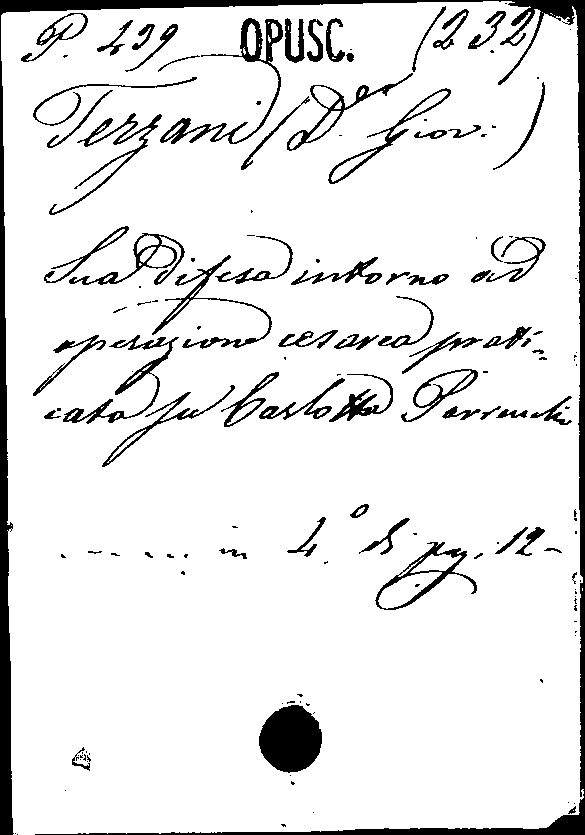 P. 439 OPUSC. (232)
Terzani (D.or Giov:)
Sua difesa intorno ad
operazione cesarea prati=
cata su Carlotta
..... in 4.o di pag. 12-